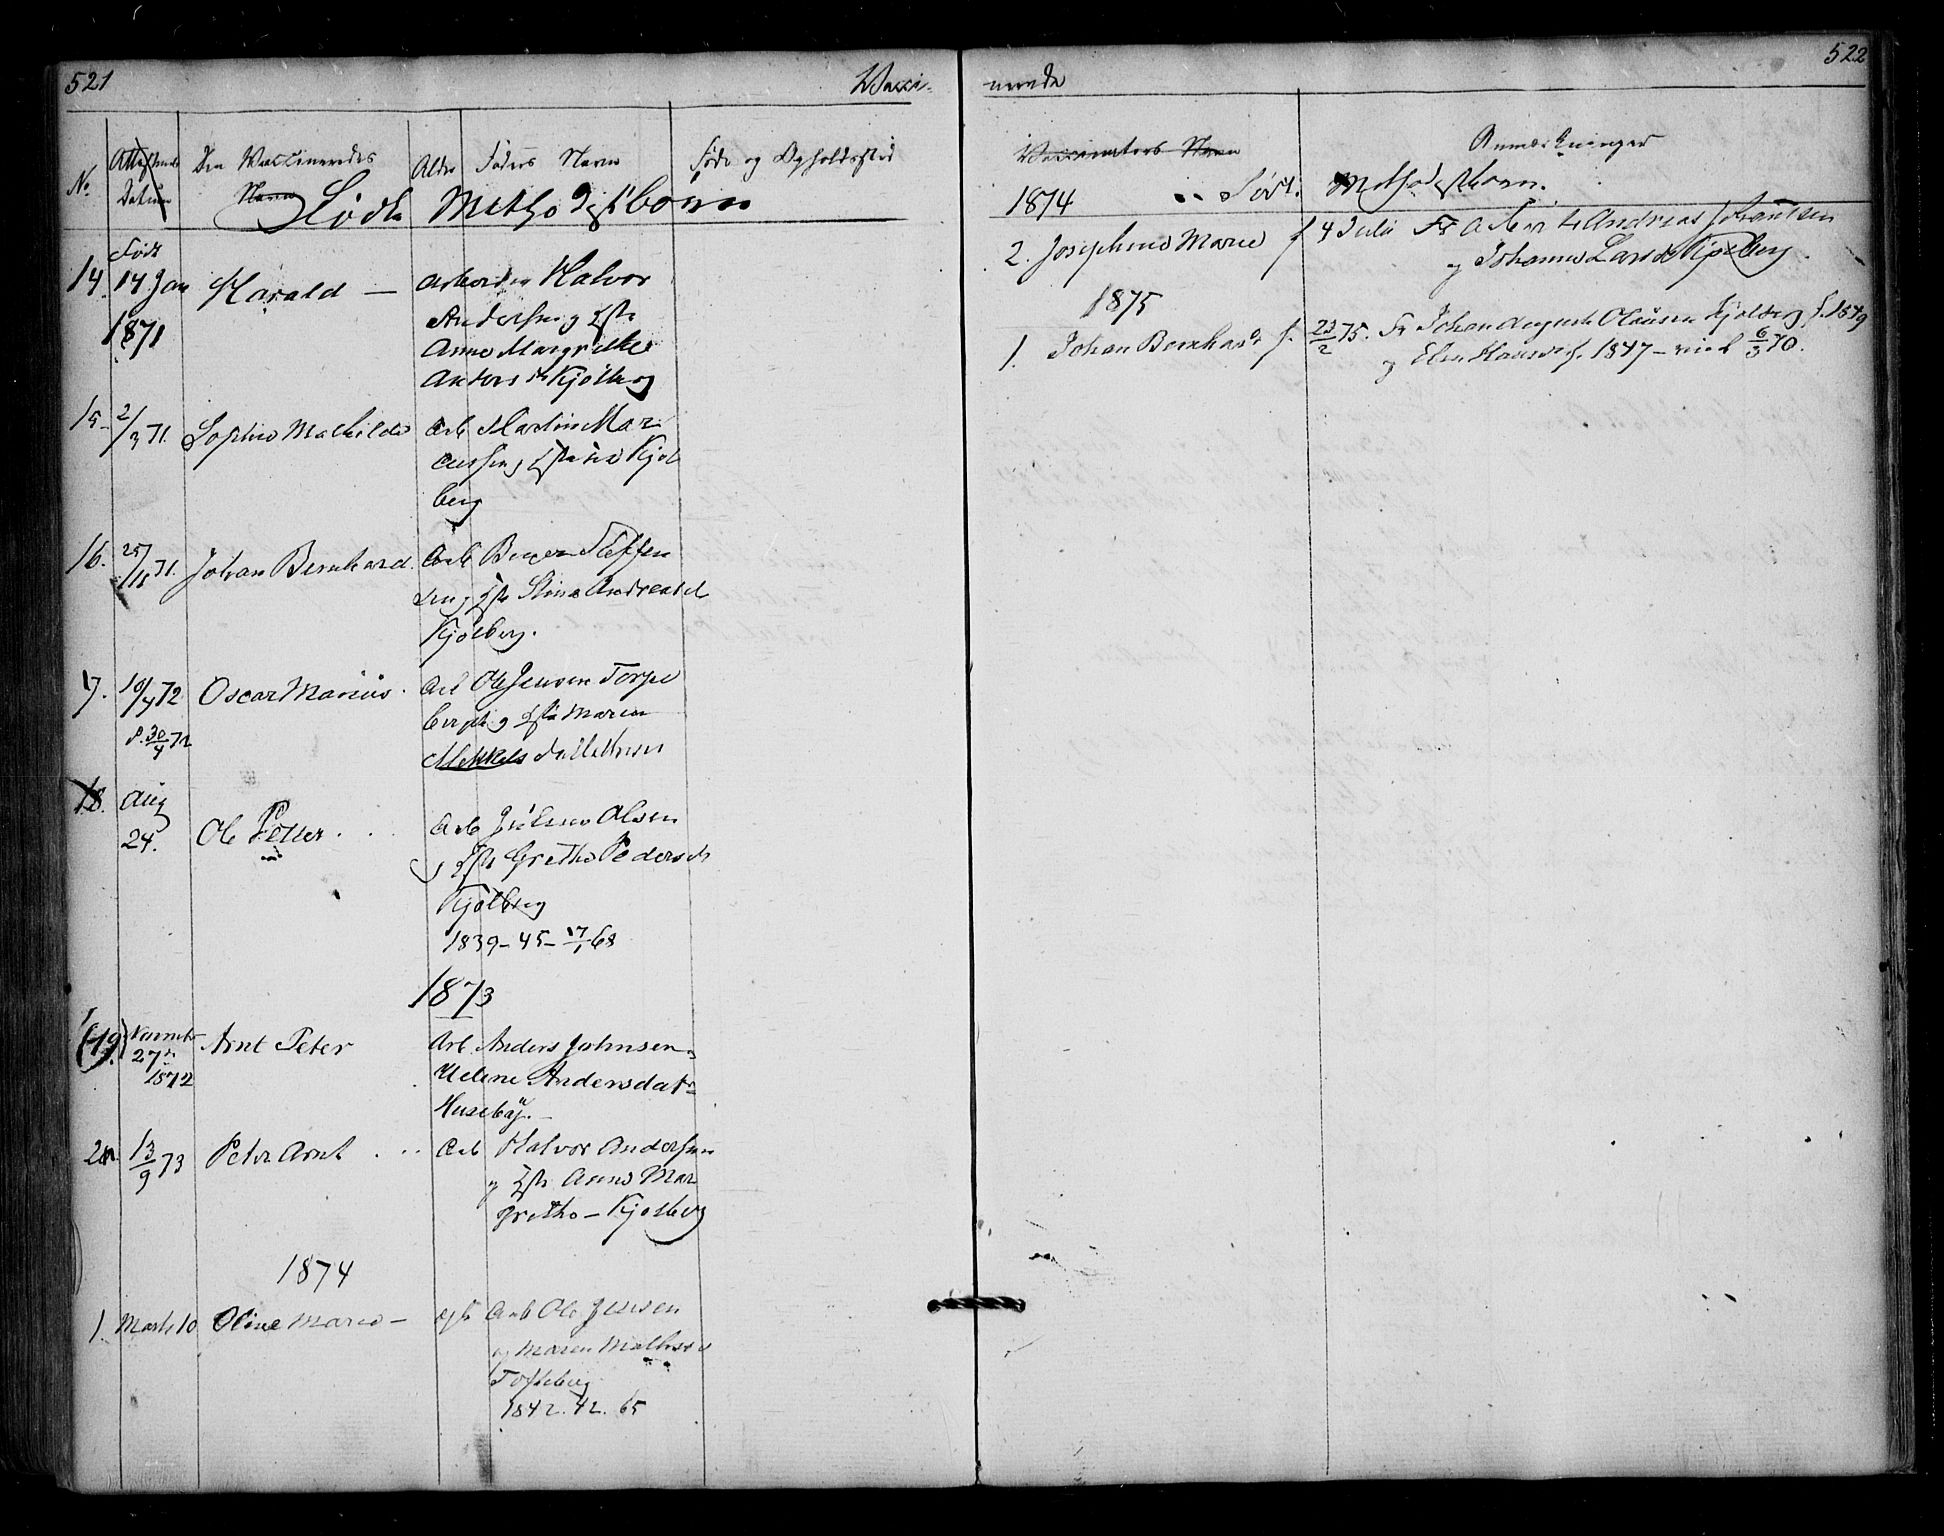 521
Vacci-
No.
Attestens
Datum
Den Vaccineredes
Navn
Alder
Faders Navn
Føde og Opholdssted
Fødte Methodistbørn
14.
Født
14 Jan
1871
Harald —
Arbeider Halvor
Andersen og Hstr
Anne Margrethe
Anders dr Kjølberg
15-
2/3 71.
Sophie Mathilde
Arb Martin Mar
cussen og Hstr
Kjøl
berg
16.
25/11 71.
Johan Bernhard.
Arb
Steffen
sen og Hstr Stina Andreasd
Kjølberg.
17.
10/4 72
d. 30/4 72
Oscar Marius.
Arb Ole Jensen Torpe
berget og Hstr Maren
Mikkels Mathesen
18.
Aug
24.
Ole Petter
Arb Julius Olsen
og Hstr Grethe Pedersdr
Kjølberg
1839-45-17/1 68
1873
(19)
Novmbr
27de
1872
Arnt Peter
Arb. Anders Johnsen
Helene Andersdatr
Husebÿ.
20.
13/9 73
Peter Arnt
Arb Halvor Andersen
og Hstr Anne Mar
grethe - Kjølberg
1874
1.
Marts 10
Oline Marie -
Arb Ole Jensen
og Maren Mathea
Torpeberg
1842. 42. 65
522
nerede
Vaccinators Navn
Anmærkninger
1874
Født. Methodistbørn.
2. Josephine Marie f 4 Juli Fr Arbeider Andreas Johansen
og Johanne Larsdr Kjølberg.
1875
1. Johan Bernhard f. 23/2 75. Fr Johan August Olausen Kjølberg f. 1849
og Elen Hansdr f. 1847 - viet 6/3 70.